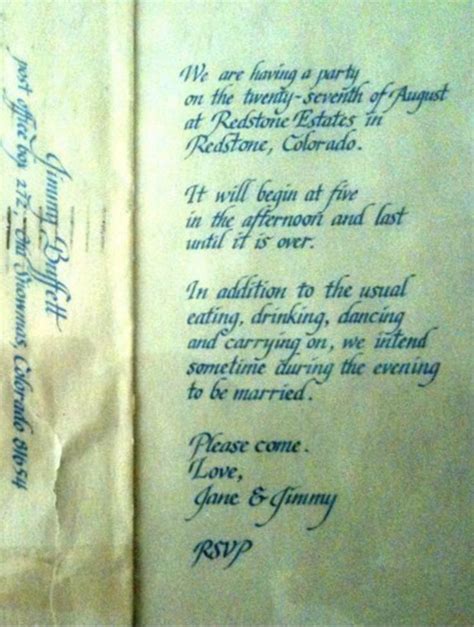 Jimmy Buffett
post office box 272, Old Snowmass, Colorado 81654
We are having a party
on the twenty-seventh of August
at Redstone Estates in
Redstone, Colorado.
It will begin at five
in the afternoon and last
until it is over.
In addition to the usual
eating, drinking, dancing
and carrying on, we intend
sometime during the evening
to be married.
Please come.
Love,
Jane & Jimmy
RSVP